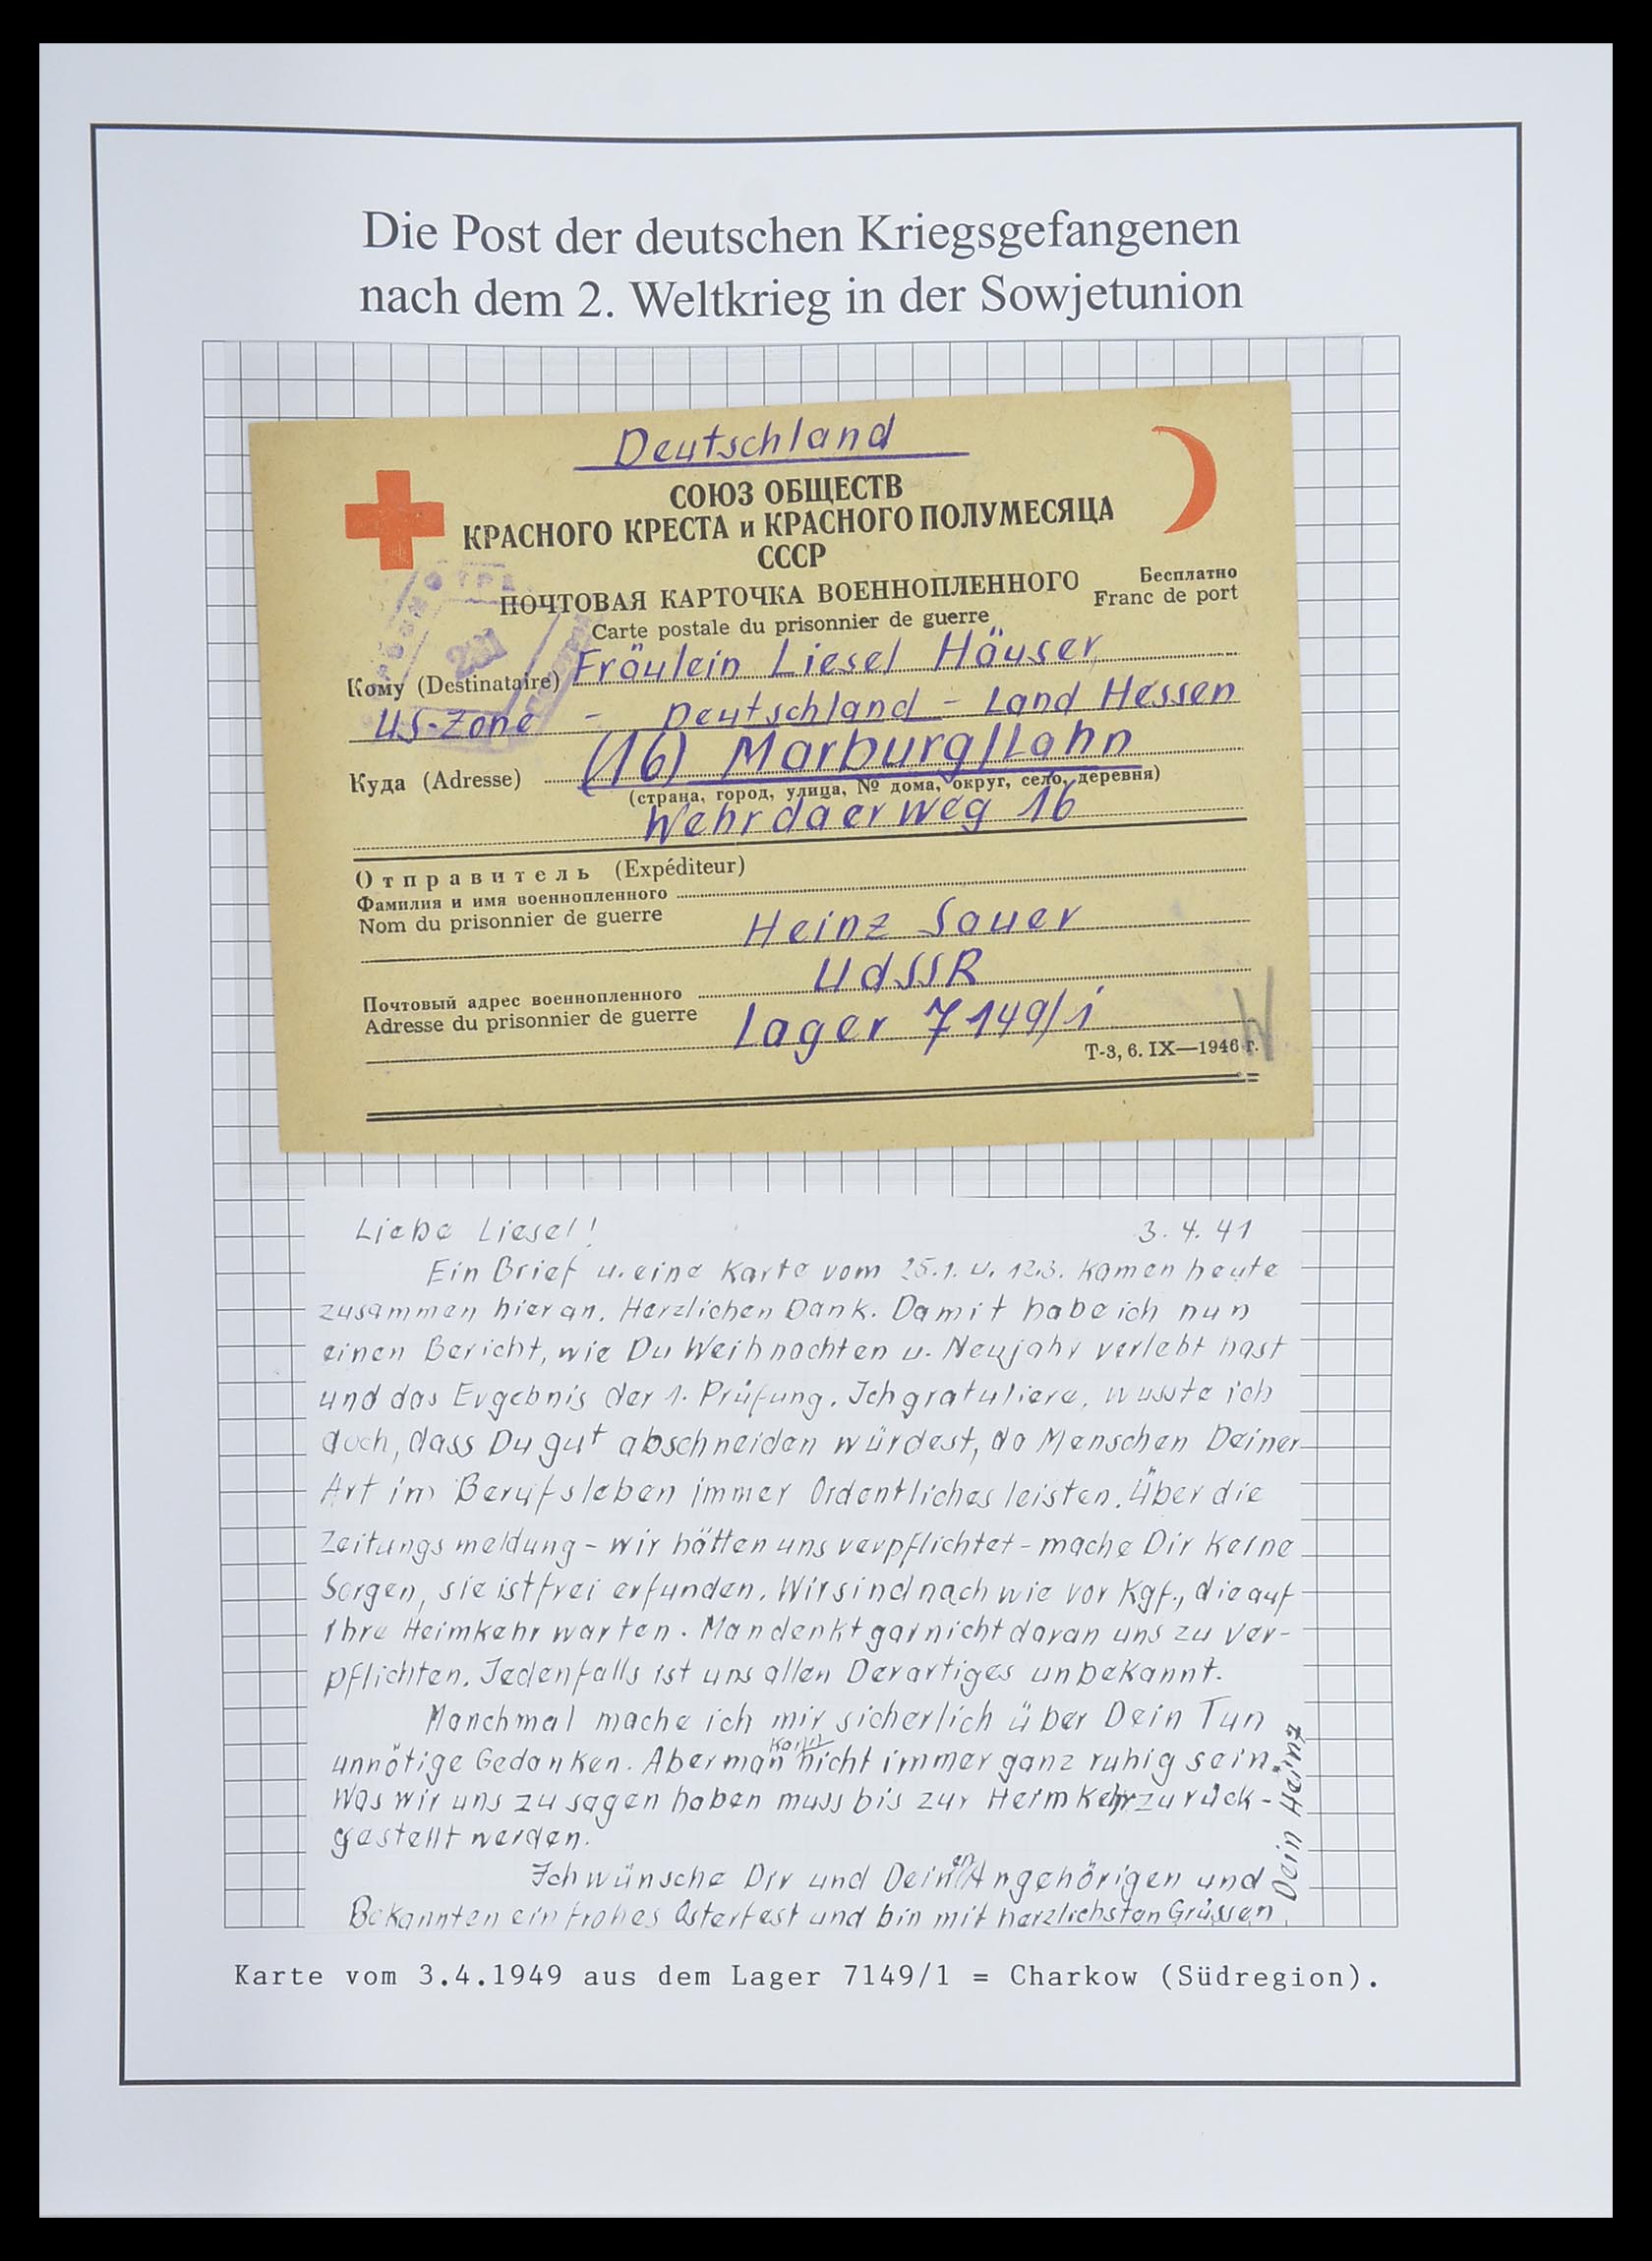 Die Post der deutschen Kriegsgefangenen
nach dem 2. Weltkrieg in der Sowjetunion
Deutschland
СОЮЗ ОБЩЕСТВ
КРАСНОГО КРЕСТА и КРАСНОГО ПОЛУМЕСЯЦА
СССР
ПОЧТОВАЯ КАРТОЧКА ВОЕННОПЛЕННОГО
Бесплатно
Carte postale du prisonnier de guerre
Franc de port
Кому (Destinataire) Fräulein Liesel Häuser
US-Zone - Deutschland - Land Hessen
Куда (Adresse) (16) Marburg/Lahn
(страна, город, улица, № дома, округ, село, деревня)
Wehrdaer Weg 16
Отправитель (Expéditeur)
Фамилия и имя военнопленного
Nom du prisonnier de guerre Heinz Sauer
UdSSR
Почтовый адрес военнопленного
Adresse du prisonnier de guerre Lager 7149/1
Т-3, 6. IX—1946 г.
Liebe Liesel! 3. 4. 41
Ein Brief u. eine Karte vom 25.1. u. 12.3. kamen heute
zusammen hier an. Herzlichen Dank. Damit habe ich nun
einen Bericht, wie Du Weihnachten u. Neujahr verlebt hast
und das Ergebnis der 1. Prüfung. Ich gratuliere, wusste ich
doch, dass Du gut abschneiden würdest, da Menschen Deiner
Art im Berufsleben immer Ordentliches leisten. Über die
Zeitungsmeldung - wir hätten uns verpflichtet - mache Dir keine
Sorgen, sie ist frei erfunden. Wir sind nach wie vor Kgf., die auf
Ihre Heimkehr warten. Man denkt gar nicht daran uns zu ver-
pflichten. Jedenfalls ist uns allen Derartiges unbekannt.
Manchmal mache ich mir sicherlich über Dein Tun
unnötige Gedanken. Aber man kann nicht immer ganz ruhig sein.
Was wir uns zu sagen haben muss bis zur Heimkehr zurück-
gestellt werden.
Ich wünsche Dir und Deinen Angehörigen und
Bekannten ein frohes Osterfest und bin mit herzlichsten Grüssen
Dein Heinz
Karte vom 3.4.1949 aus dem Lager 7149/1 = Charkow (Südregion).